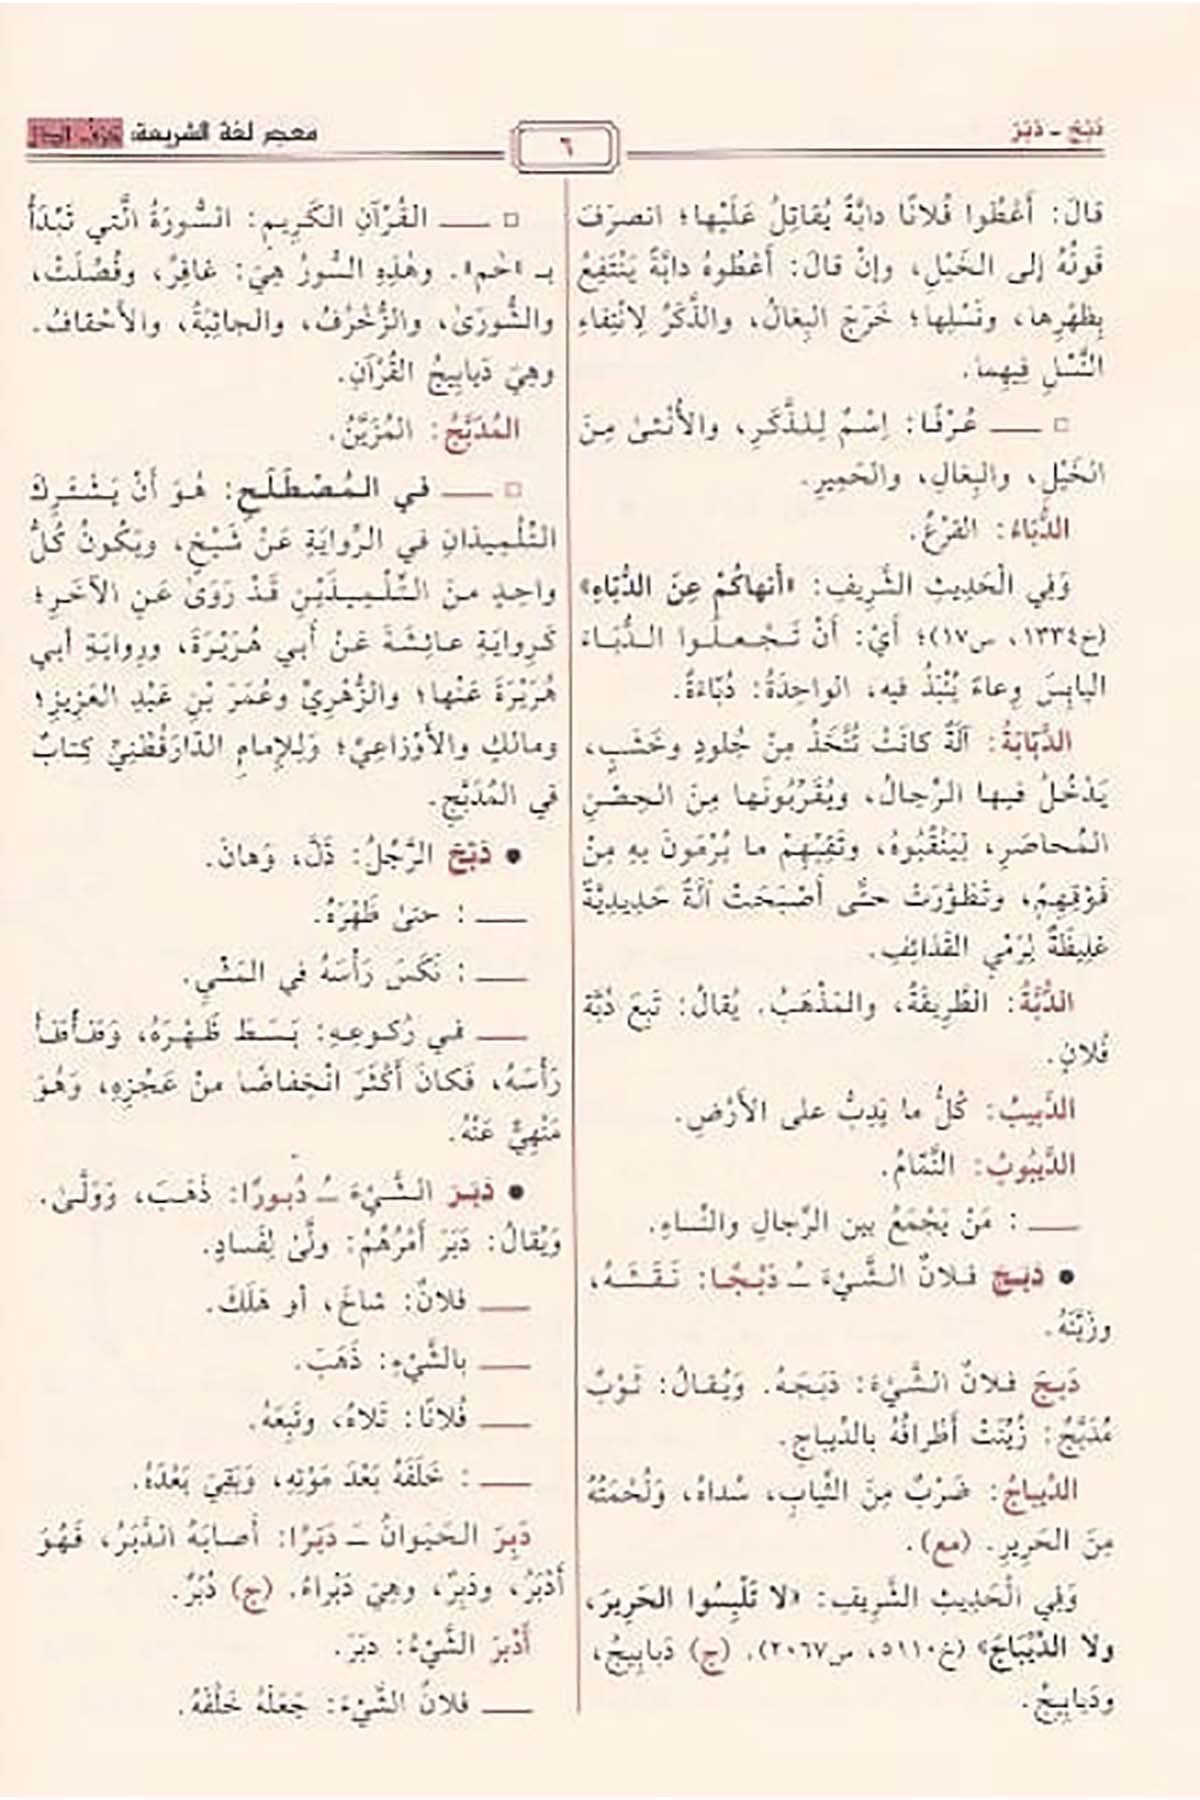 دَبَخَ - دَبَرَ
٦
معجم لغة الشريعة: حرف الدال
قالَ: أَعْطُوا فُلانًا دابَّةً يُقاتِلُ عَلَيْها؛ انصرَفَ
قَوْلُهُ إلى الخَيْلِ، وإنْ قالَ: أَعْطُوهُ دابَّةً يَنْتَفِعُ
بِظَهْرِها، ونَسْلِها؛ خَرَجَ البِغالُ، والذَّكَرُ لِانْتِفاءِ
النَّسْلِ فِيهِما.
□ ــــ عُرْفًا: اِسْمٌ لِلذَّكَرِ، والأُنْثىٰ مِنَ
الخَيْلِ، والبِغالِ، والحَمِيرِ.
الدُّبّاءُ: القَرْعُ.
وَفِي الْحَدِيثِ الشَّرِيفِ: «أنهاكُمْ عِنَ الدُّبّاءِ»
(خ١٣٣٤، س١٧)؛ أَيْ: أَنْ تَجْعَلُوا الدُّبّاءَ
اليابِسَ وِعاءً يُنْبَذُ فيه، الواحِدَةُ: دُبّاءَةٌ.
الدَّبّابَةُ: آلَةٌ كانَتْ تُتَّخَذُ مِنْ جُلودٍ وخَشَبٍ،
يَدْخُلُ فيها الرِّجالُ، ويُقَرِّبُونَها مِنَ الحِصْنِ
المُحاصَرِ، لِيَنْقُبُوهُ، وتَقِيْهِمْ ما يُرْمَونَ بِهِ مِنْ
فَوْقِهِمْ، وتَطَوَّرَتْ حتَّى أَصْبَحَتْ آلَةً حَدِيدِيَّةً
غَلِيظَةً لِرَمْيِ القَذائِفِ.
الدُّبَّةُ: الطَّرِيقَةُ، والمَذْهَبُ. يُقالُ: تَبِعَ دُبَّةَ
فُلانٍ.
الدَّبِيبُ: كُلُّ ما يَدِبُّ على الأَرْضِ.
الدَّيْبُوبُ: النَّمّامُ.
ــــ : مَنْ يَجْمَعُ بين الرِّجالِ والنِّساءِ.
● دَبَجَ فلانٌ الشَّيْءَ ـُ دَبْجًا: نَقَشَهُ،
وزَيَّنَهُ.
دَبَّجَ فلانٌ الشَّيْءَ: دَبَجَهُ. وَيُقالُ: ثَوْبٌ
مُدَبَّجٌ: زُيِّنَتْ أَطْرافُهُ بالدِّيباجِ.
الدِّيباجُ: ضَرْبٌ مِنَ الثِّيابِ، سُداهُ، وَلُحْمَتُهُ
مِنَ الحَرِيرِ. (مع).
وَفِي الْحَدِيثِ الشَّرِيفِ: «لا تَلْبِسُوا الحَرِيرَ،
ولا الدِّيْبَاجَ» (خ٥١١٠، س٢٠٦٧). (ج) دَبابِيجُ،
ودَيابِيجُ.
□ ــــ القُرْآنِ الكَرِيمِ: السُّورَةُ الَّتِي تَبْدَأُ
بـ «حٰم». وهٰذِهِ السُّوَرُ هِيَ: غافِرٌ، وفُصِّلَتْ،
والشُّورَىٰ، والزُّخْرُفُ، والجاثِيَةُ، والأَحْقافُ.
وهِيَ دَيابِيجُ القُرْآنِ.
المُدَبَّجُ: المُزَيَّنُ.
□ ــــ في المُصْطَلَحِ: هُوَ أَنْ يَشْتَرِكَ
التِّلْمِيذانِ في الرِّوايَةِ عَنْ شَيْخٍ، ويَكُونُ كُلُّ
واحِدٍ منَ التِّلْمِيذَيْنِ قَدْ رَوَىٰ عَنِ الآخَرِ؛
كَرِوايَةِ عائِشَةَ عَنْ أبي هُرَيْرَةَ، ورِوايَةِ أبي
هُرَيْرَةَ عَنْها؛ والزُّهْرِيِّ وعُمَرَ بْنِ عَبْدِ العَزِيزِ؛
ومالكٍ والأَوْزاعِيِّ؛ وَلِلإمامِ الدّارَقُطْنِيِّ كِتابٌ
في المُدَبَّجِ.
● دَبَّخَ الرَّجُلُ: ذَلَّ، وَهانَ.
ــــ : حنىٰ ظَهْرَهُ.
ــــ : نَكَسَ رَأْسَهُ في المَشْيِ.
ــــ في رُكوعِهِ: بَسَطَ ظَهْرَهُ، وَطَأْطَأَ
رَأْسَهُ، فَكانَ أَكْثَرَ انْخِفاضًا منْ عَجُزِهِ، وَهُوَ
مَنْهِيٌّ عَنْهُ.
● دَبَرَ الشَّيْءَ ـُ دُبورًا: ذَهَبَ، وَوَلَّىٰ.
وَيُقالُ: دَبَرَ أَمْرُهُمْ: ولَّىٰ لِفَسادٍ.
ــــ فلانٌ: شاخَ، أو هَلَكَ.
ــــ بالشَّيْءِ: ذَهَبَ.
ــــ فُلانًا: تَلاهُ، وتَبِعَهُ.
ــــ : خَلَفَهُ بَعْدَ مَوْتِهِ، وَبَقِيَ بَعْدَهُ.
دَبِرَ الحَيَوانُ ـَ دَبَرًا: أَصابَهُ الدَّبَرُ، فَهُوَ
أَدْبَرُ، ودَبِرٌ، وهِيَ دَبْراءُ. (ج) دُبْرٌ.
أَدْبَرَ الشَّيْءُ: دَبَرَ.
ــــ فلانٌ الشَّيْءَ: جَعَلَهُ خَلْفَهُ.